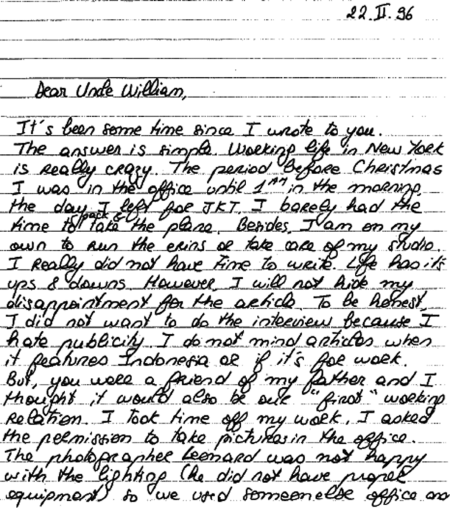 22.II.96
Dear Uncle William,
It's been some time since I wrote to you.
The answer is simple. Working life in New York
is really crazy. The period before Christmas
I was in the office until 1 in the morning
the day I left for JKT. I barely had the
pack &
time to take the plane. Besides, I am on my
own to run the erins or take care of my studio.
I really did not have time to write. Life has its
ups & downs. However I will not hide my
disappointment for the article. To be honest,
I did not want to do the interview because I
hate publicity. I do not mind articles when
it features Indonesia or if it's for work.
But, you were a friend of my father and I
thought it would also be our "first" working
relation. I took time off my work, I asked
the permission to take pictures in the office.
The photographer Leonard was not happy
with the lighting (he did not have proper
equipment) so we used someone else office and